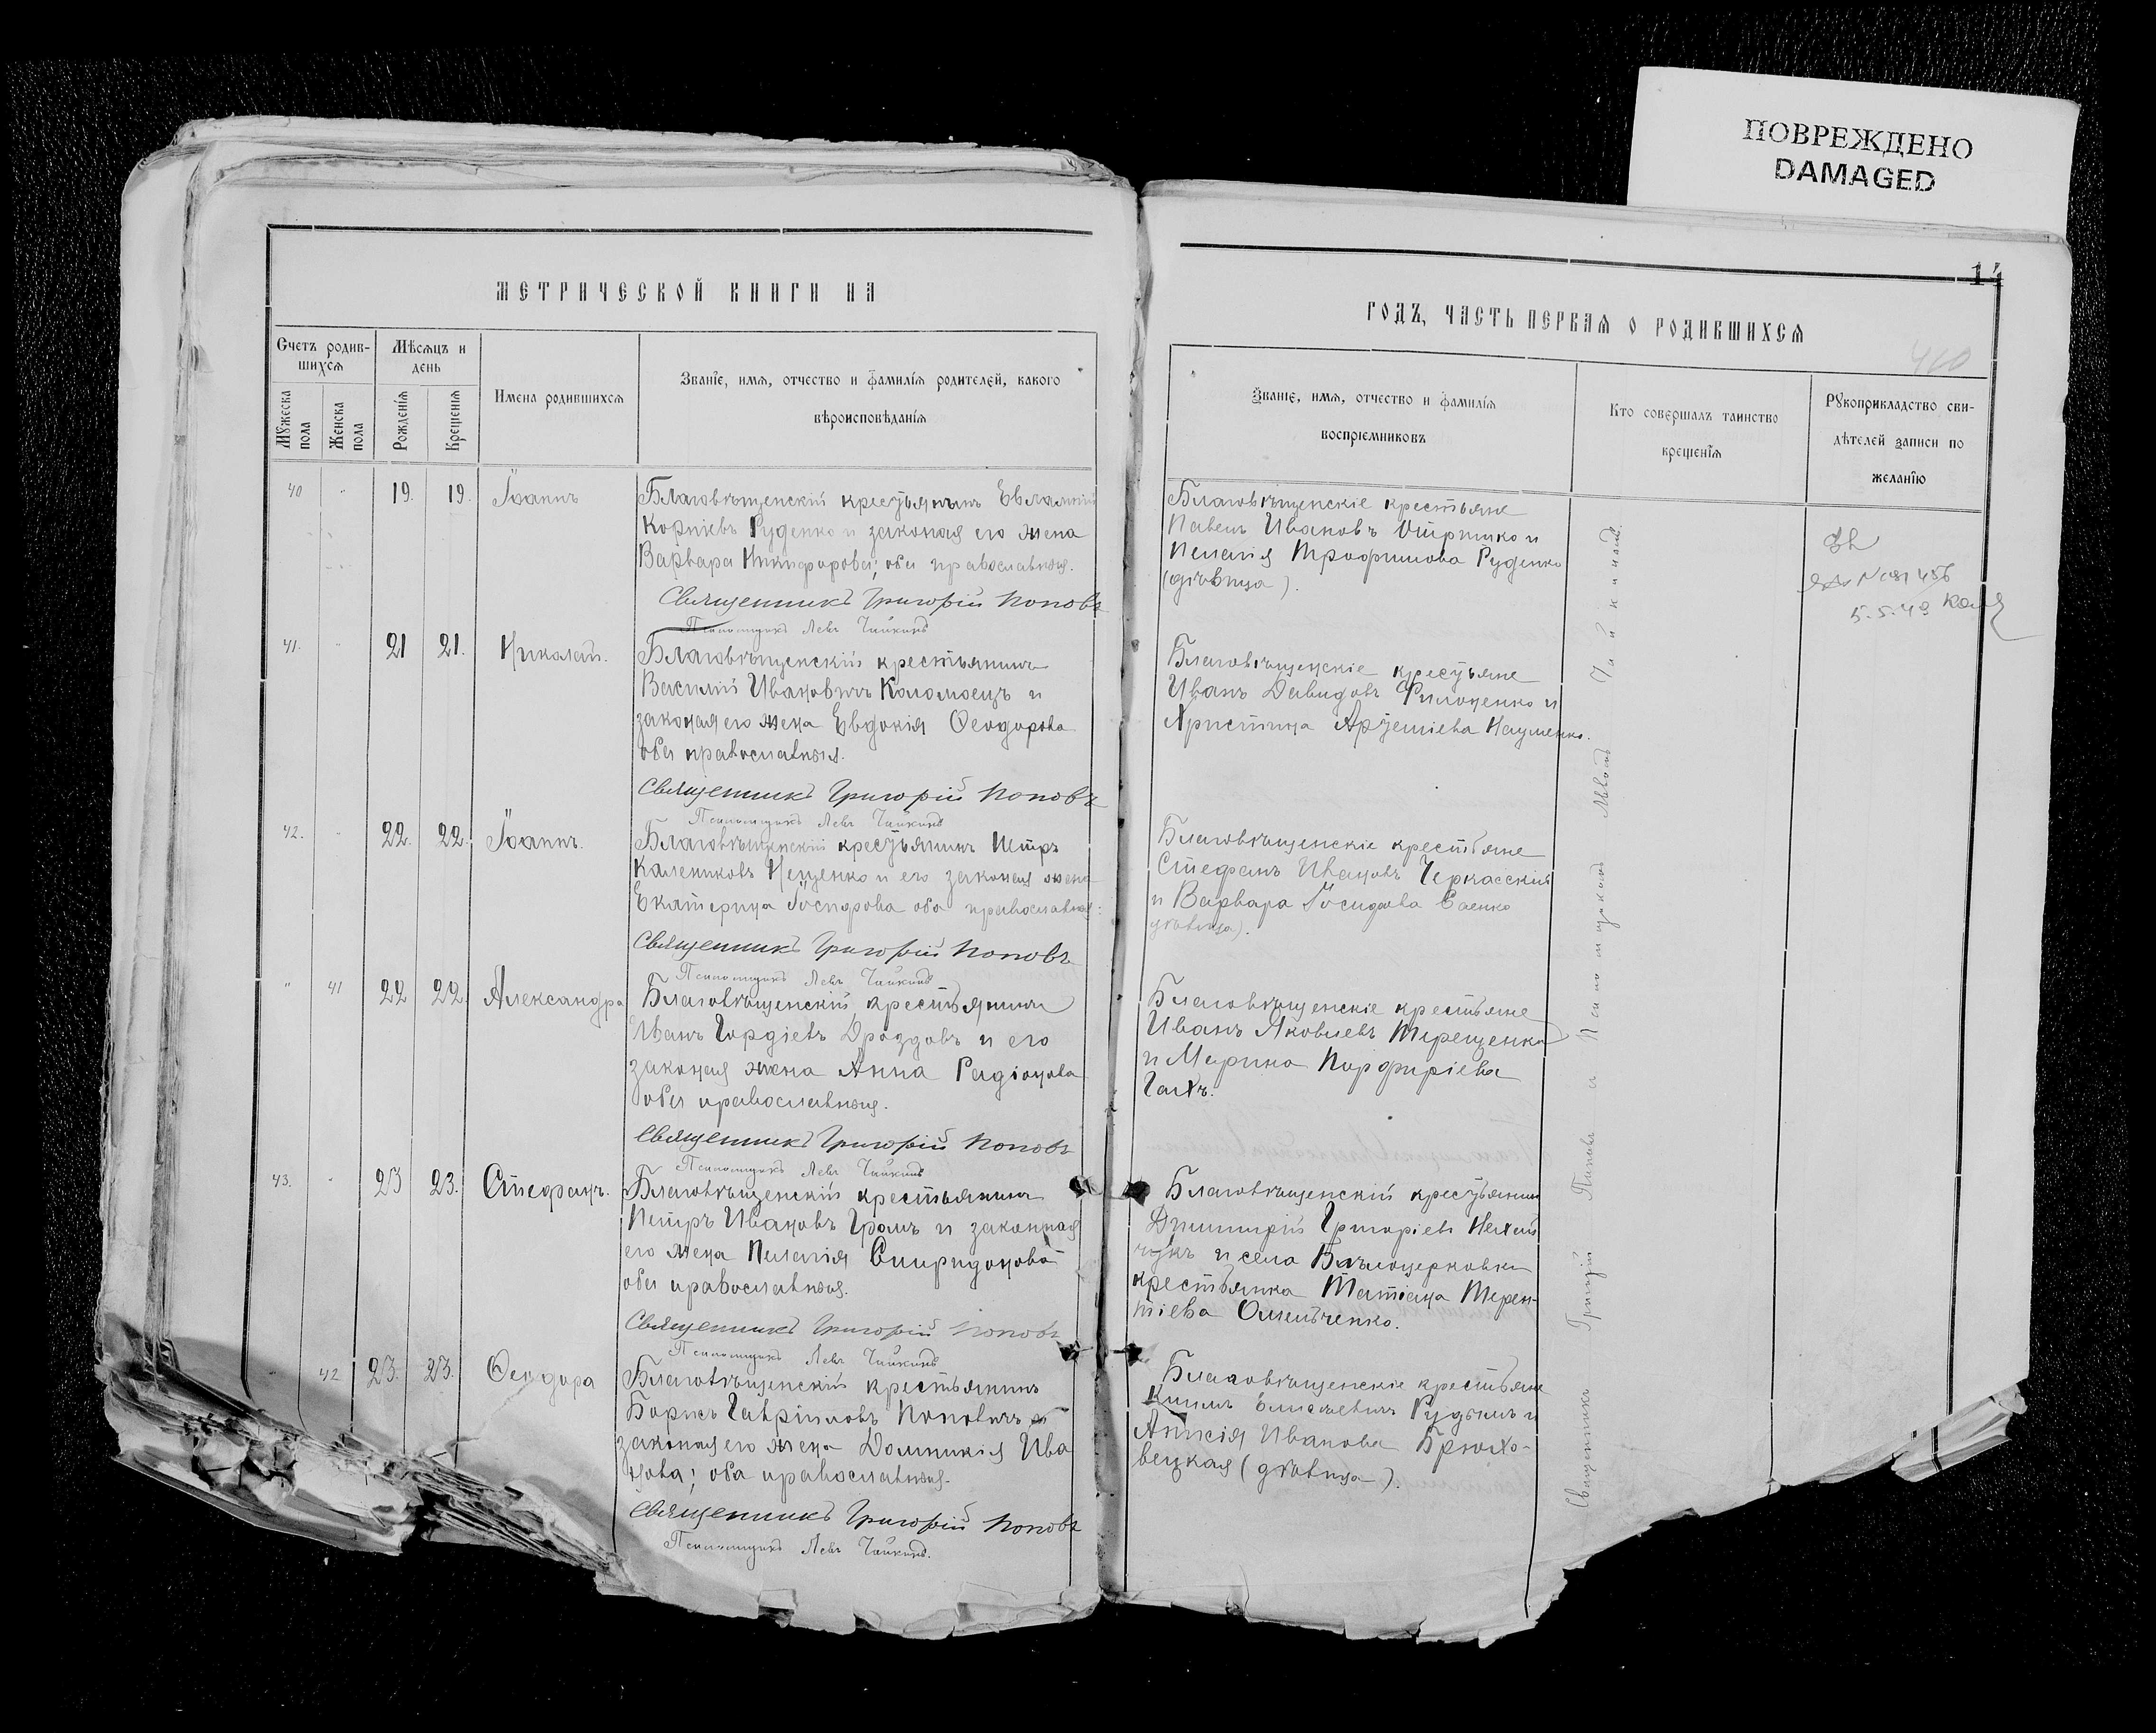 ПОВРЕЖДЕНО
DAMAGED
14
МЕТРИЧЕСКОЙ КНИГИ НА
Счетъ родив-
шихся
Мѣсяцъ и
день
Мужеска
пола
Женска
пола
Рожденія
Крещенія
Имена родившихся
Званіе, имя, отчество и фамилія родителей, какого
вѣроисповѣданія
40 " 19. 19. Іоаннъ
Благовѣщенскій крестьянинъ Евлампій
Корніевъ Руденко и законая его жена
Варвара Никифорова; оба православныя.
Священникъ Григорій Поповъ
Псаломщикъ Левъ Чайкинъ
41. " 21 21. Николай.
Благовѣщенскій крестьянинъ
Василій Ивановичъ Коломоецъ и
законая его жена Евдокія Ѳеодорова
оба православныя.
Священникъ Григорій Поповъ
Псаломщикъ Левъ Чайкинъ
42. " 22. 22. Іоаннъ.
Благовѣщенскій крестьянинъ Петръ
Калениковъ Нещенко и его законая жена
Екатерина Іосифова оба православныя:
Священникъ Григорій Поповъ
Псаломщикъ Левъ Чайкинъ
" 41 22 22. Александра
Благовѣщенскій крестьянинъ
Иванъ Гордіевъ Дроздовъ и его
законая жена Анна Радіонова
оба православныя.
Священникъ Григорій Поповъ
Псаломщикъ Левъ Чайкинъ
43. " 23 23. Стефанъ.
Благовѣщенскій крестьянинъ
Петръ Ивановъ Громъ и законная
его жена Пелагія Спиридонова
оба православныя.
Священникъ Григорій Поповъ
Псаломщикъ Левъ Чайкинъ
42 23. 23. Ѳеодора
Благовѣщенскій крестьянинъ
Борисъ Гавріиловъ Поповичъ и
законая его жена Домникія Ива
нова; оба православныя.
Священникъ Григорій Поповъ
Псаломщикъ Левъ Чайкинъ.
ГОДЪ, ЧАСТЬ ПЕРВАЯ О РОДИВШИХСЯ
Званіе, имя, отчество и фамилія
воспріемниковъ
Кто совершалъ таинство
крещенія
Рукоприкладство сви-
дѣтелей записи по
желанію
Благовѣщенскіе крестьяне
Павелъ Ивановъ и
Пелагія Трофимова Руденко
(дѣвица).
Благовѣщенскіе крестьяне
Иванъ Давидовъ Филоненко и
Христина Артеміева Науменко.
Благовѣщенскіе крестьяне
Стефанъ Ивановъ Черкасскій
и Варвара Іосифова Саенко
дѣвица).
Благовѣщенскіе крестьяне
Иванъ Яковлевъ Терещенко
и Марина Порфиріева
Благовѣщенскій крестьянинъ
Димитрій Григоріевъ
и села Бѣлоцерковки
крестьянка Татіана Терен-
тіева Омельченко.
Благовѣщенскіе крестьяне
Климъ Елисѣевичъ и
Анисія Иванова Брюхо-
вецкая (дѣвица).
Священникъ Григорій Поповъ и Псаломщикъ Левъ Чайкинъ.
5.5.49